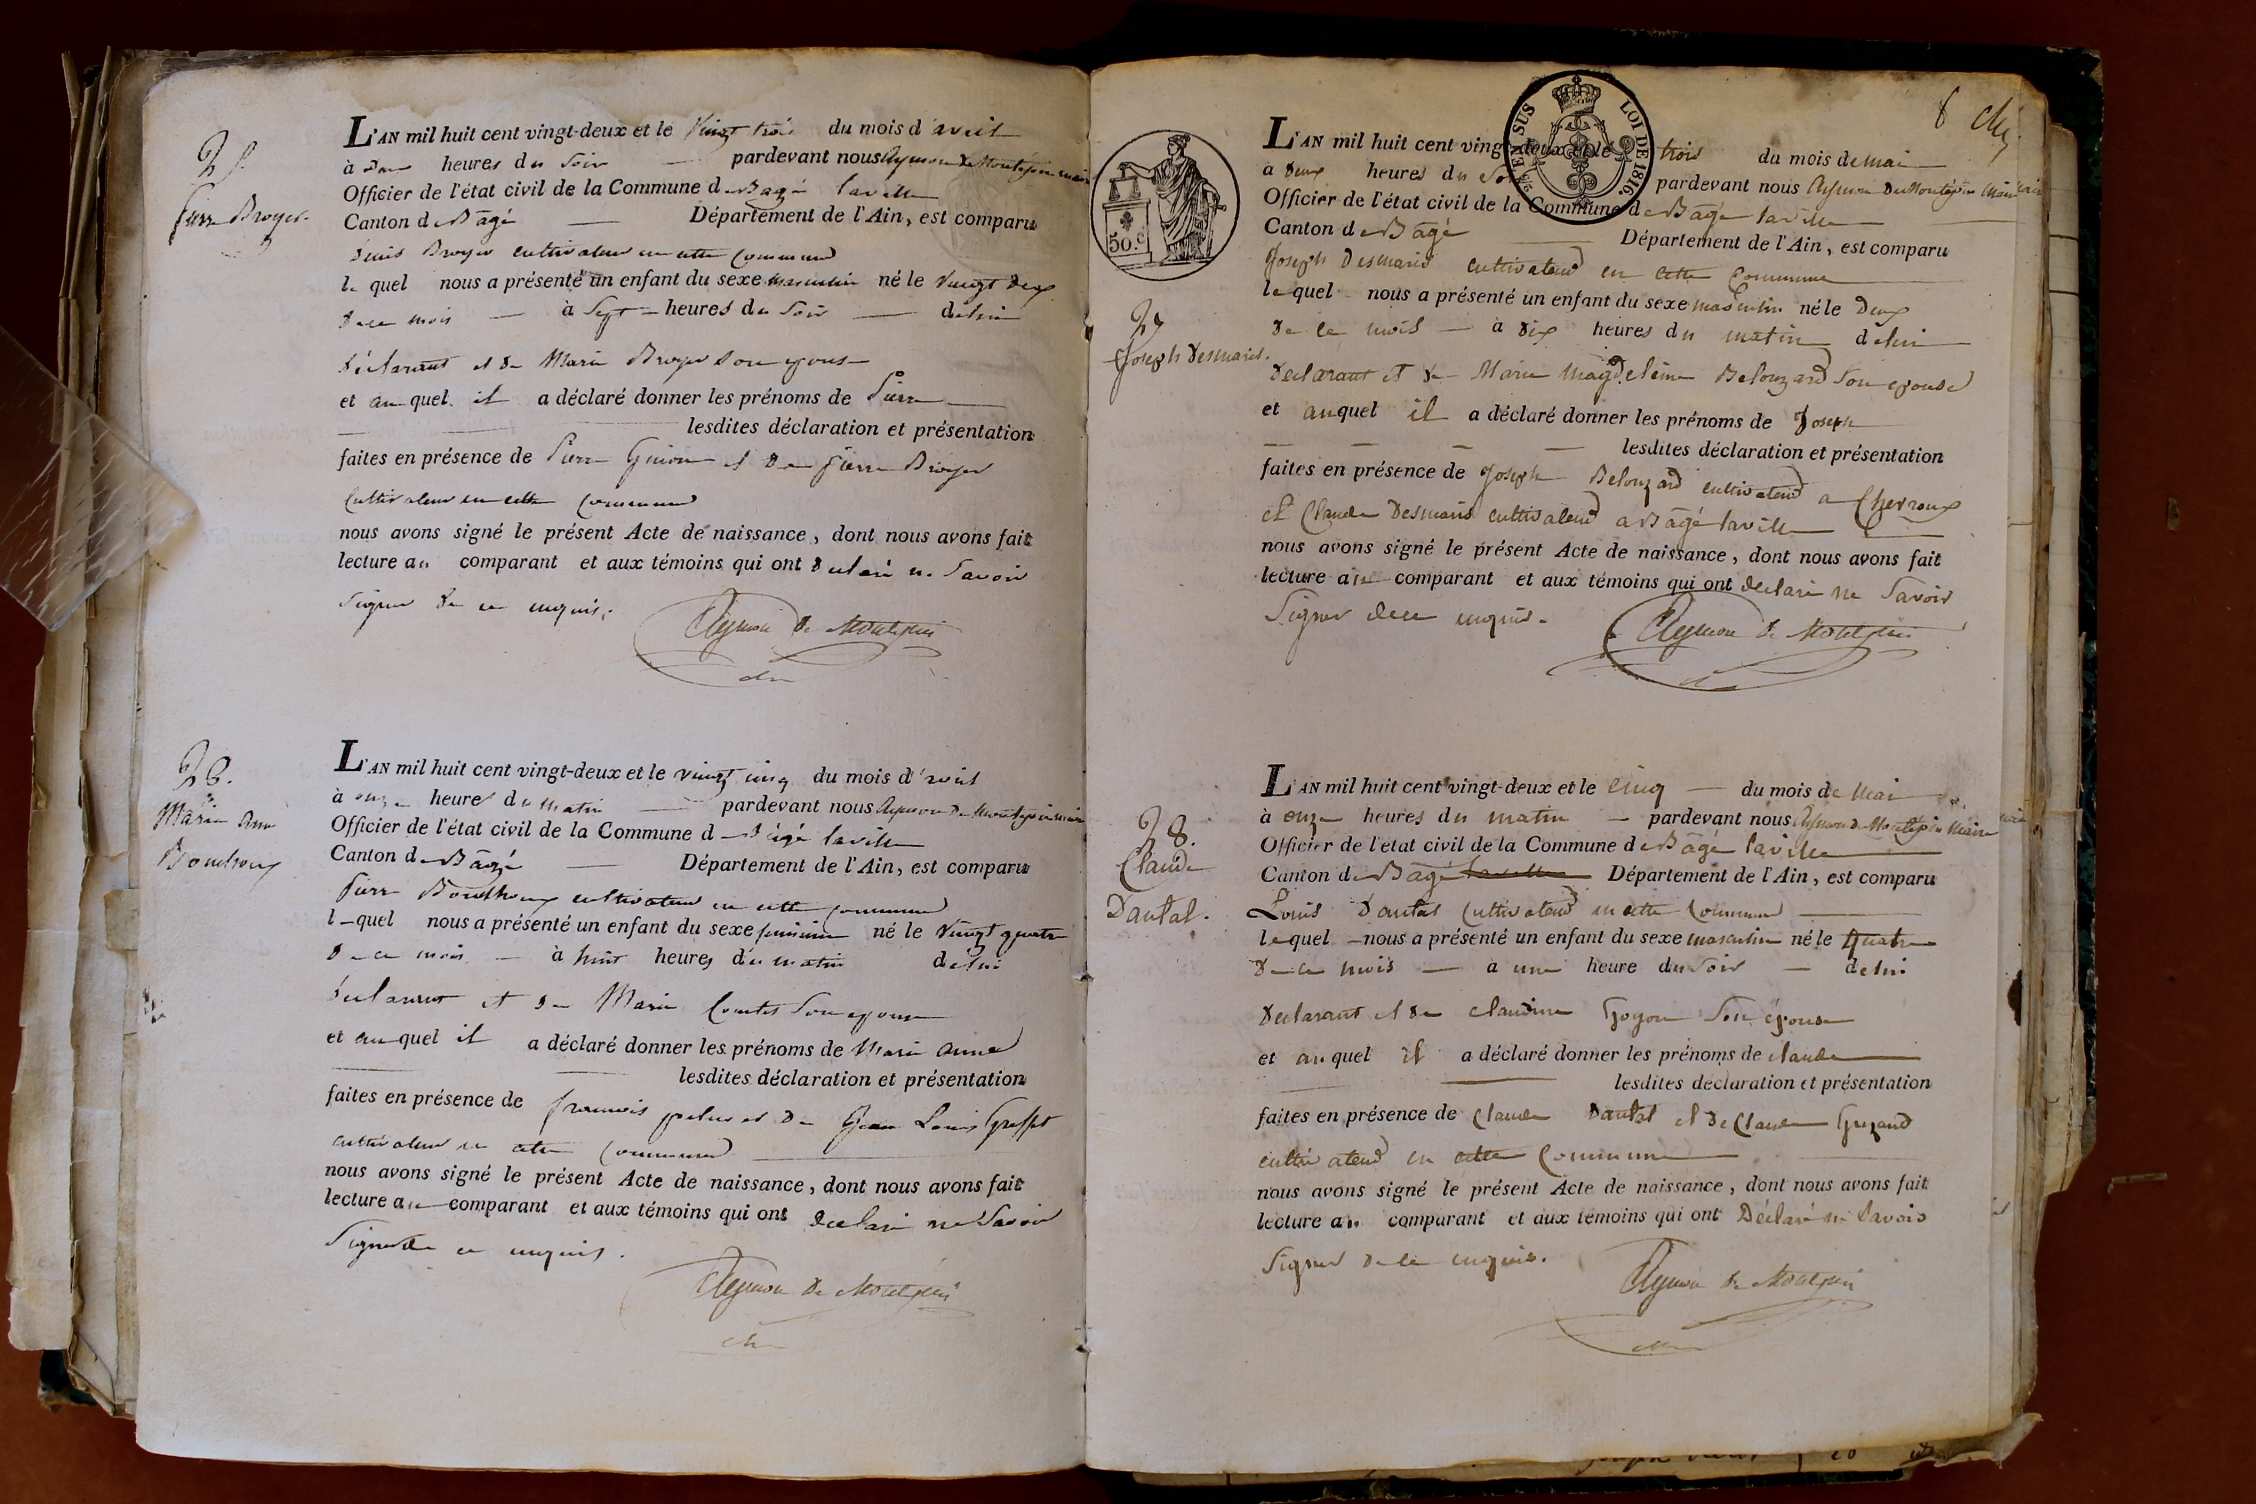 25.
Pierre Broyer.
L'AN mil huit cent vingt-deux et le Vingt trois du mois d'avril
à deux heures du soir pardevant nous Aymon De Montépin maire
Officier de l'état civil de la Commune de Bagé laville
Canton de Bâgé Département de l'Ain, est comparu
Denis Broyer cultivateur en cette commune
lequel nous a présenté un enfant du sexe masculin né le vingt deux
de ce mois à Sept heures du Soir de lui
déclarant et de Marie Broyer son épouse
et auquel il a déclaré donner les prénoms de Pierre
lesdites déclaration et présentation
faites en présence de Pierre Guion et De pierre Broyer
Cultivateur en cette commune
nous avons signé le présent Acte de naissance, dont nous avons fait
lecture au comparant et aux témoins qui ont déclaré ne Savoir
Signer de ce enquis.
Aymon De Montépin
26.
Marie Anne
Bouchoux
L'AN mil huit cent vingt-deux et le vingt cinq du mois d'avril
à onze heures du matin pardevant nous Aymon De Montépin maire
Officier de l'état civil de la Commune de Bâgé laville
Canton de Bâgé Département de l'Ain, est comparu
Pierre cultivateur en cette commune
lequel nous a présenté un enfant du sexe feminin né le vingt quatre
De ce mois à huit heures du matin de lui
déclarant et de Marie Comtet Son epouse
et auquel il a déclaré donner les prénoms de Marie anne
lesdites déclaration et présentation
faites en présence de francois et De Jean Louis Greffet
cultivateur en cette commune
nous avons signé le présent Acte de naissance, dont nous avons fait
lecture au comparant et aux témoins qui ont declaré ne Savoir
Signer de ce enquis.
Aymon De Montépin
8
SUS LOI DE 1816.
50.c
27
Joseph Desmaris.
L'AN mil huit cent vingt-deux et le trois du mois de mai
à Deux heures du Soir pardevant nous Aymon De Montépin Maire
Officier de l'état civil de la Commune de Bâgé laville
Canton de Bâgé Département de l'Ain, est comparu
Joseph Desmaris cultivateur en cette commune
lequel nous a présenté un enfant du sexe masculin né le Deux
De ce mois à dix heures du matin de lui
Declarant et De Marie Magdeleine Belouzard Son epouse
et auquel il a déclaré donner les prénoms de Joseph
lesdites déclaration et présentation
faites en présence de Joseph Belouzard cultivateur a Chevroux
et Claude Desmaris cultivateur a Bâgé laville
nous avons signé le présent Acte de naissance, dont nous avons fait
lecture au comparant et aux témoins qui ont declaré ne Savoir
Signer de ce enquis.
Aymon De Montépin
28.
Claude
Dautat.
L'AN mil huit cent vingt-deux et le cinq du mois de Mai
à onze heures du matin pardevant nous Aymon De Montépin Maire
Officier de l'état civil de la Commune de Bâgé laville
Canton de Bagé laville Département de l'Ain, est comparu
Louis Dautat Cultivateur en cette commune
lequel nous a présenté un enfant du sexe masculin né le Quatre
De ce mois à une heure du Soir de lui
Declarant et De claudine Goyon Son épouse
et auquel il a déclaré donner les prénoms de claude
lesdites déclaration et présentation
faites en présence de Claude Dautat et De Claude
cultivateur en cette Commune
nous avons signé le présent Acte de naissance, dont nous avons fait
lecture au comparant et aux témoins qui ont Déclaré ne Savoir
Signer De ce enquis.
Aymon De Montépin